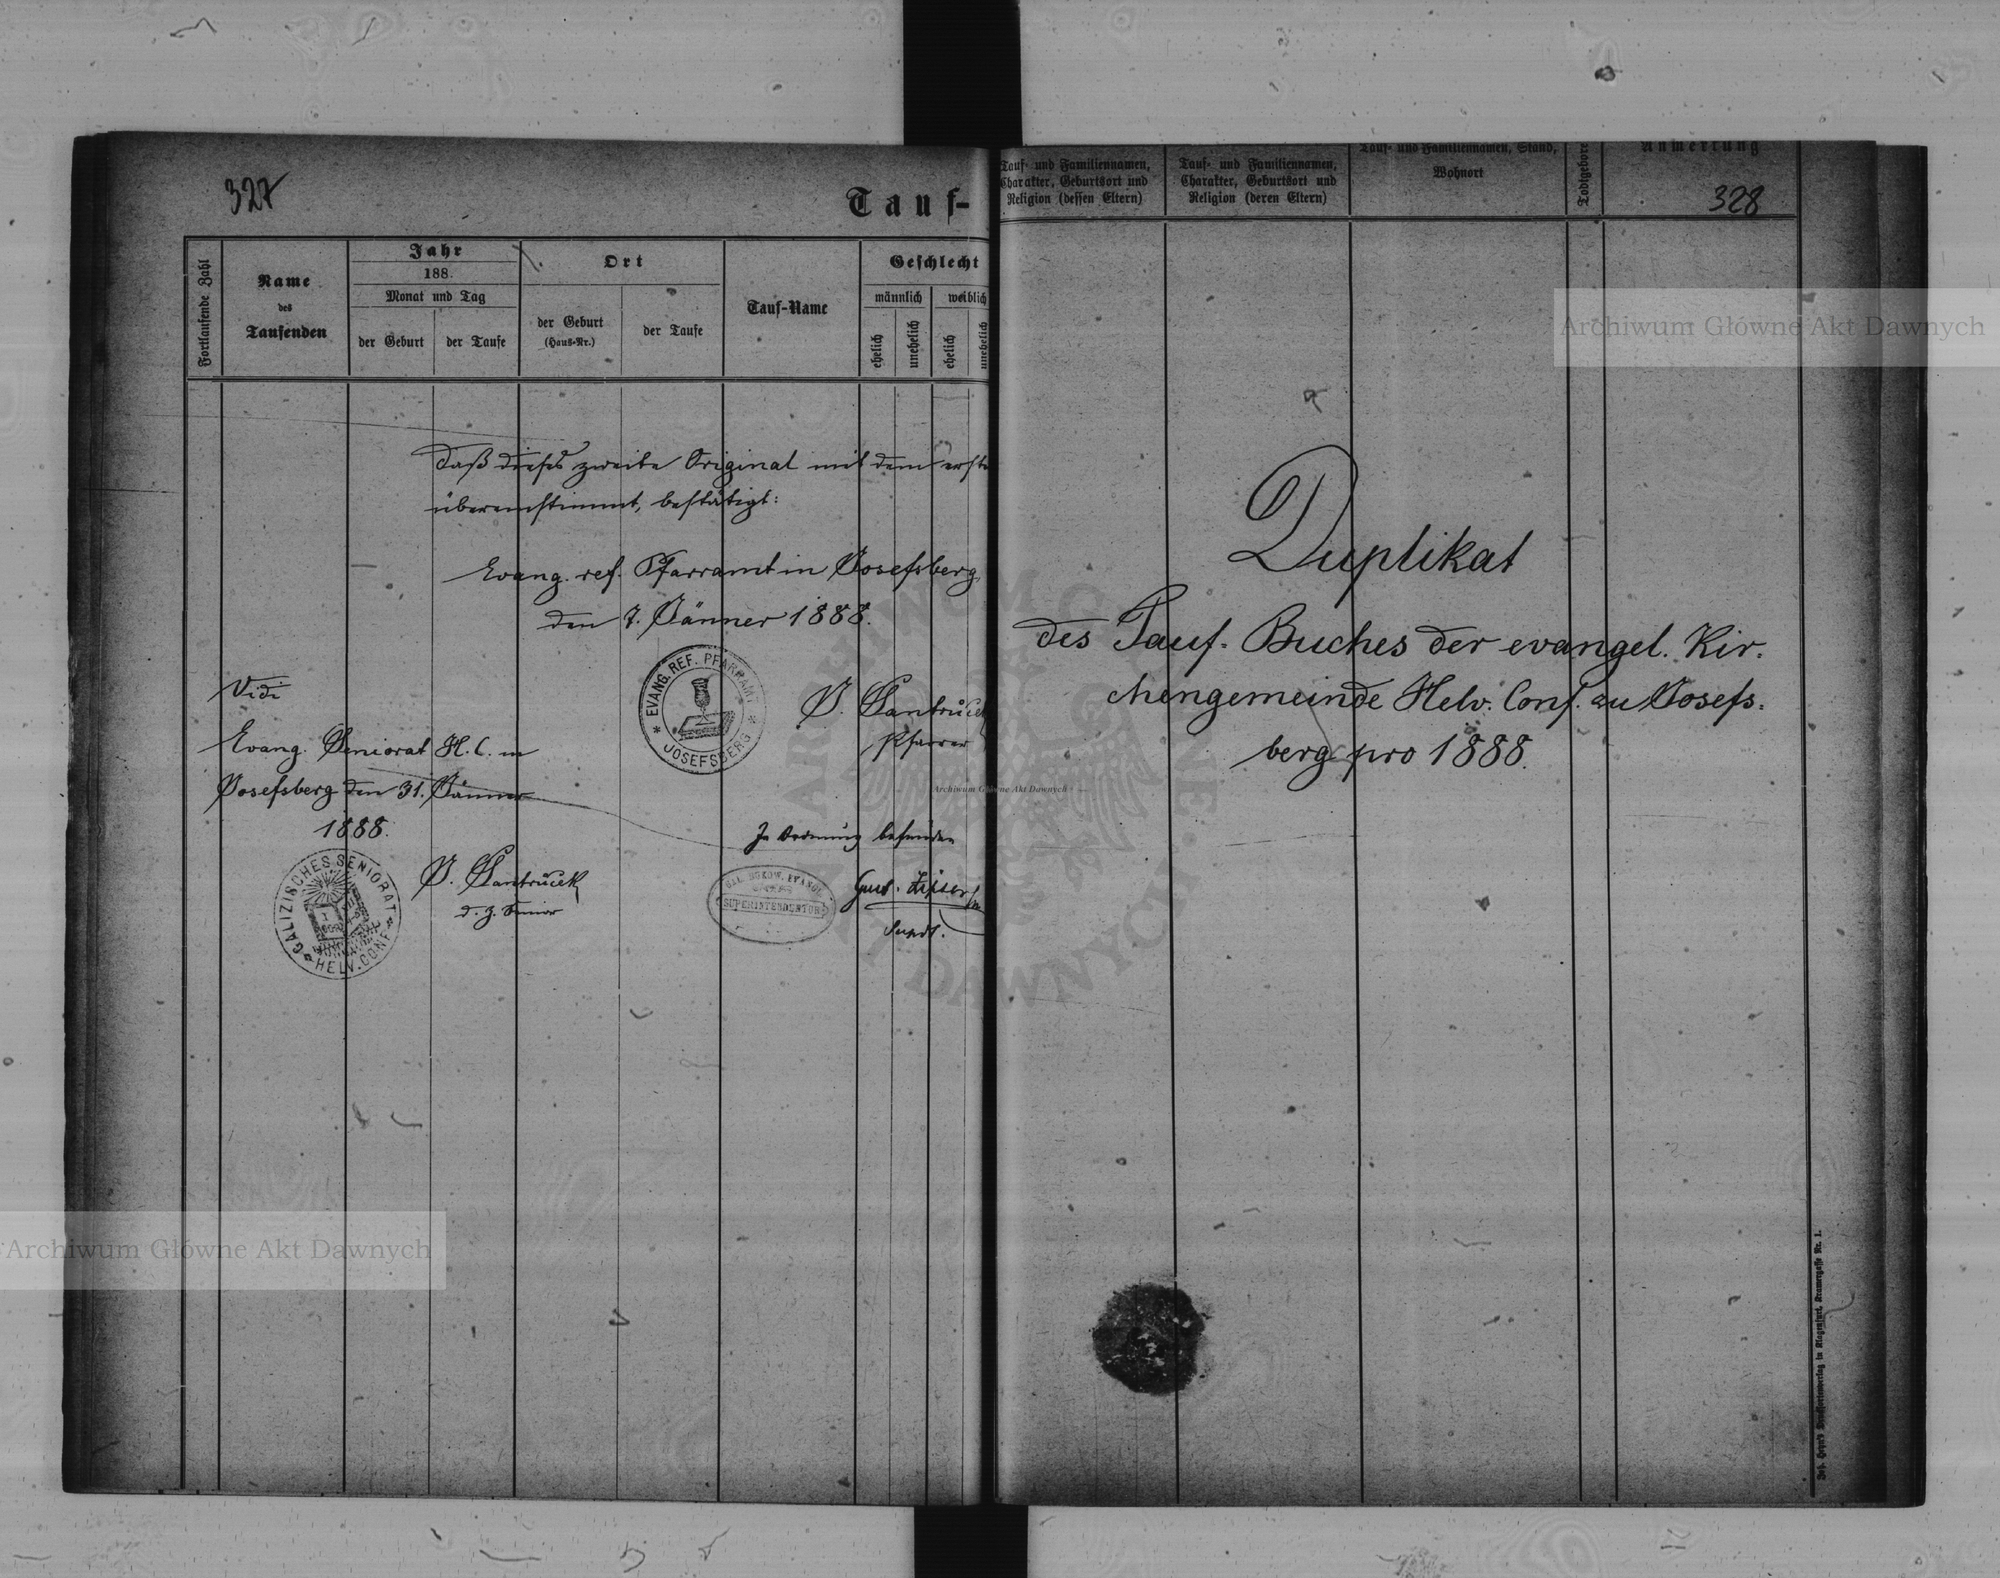 327
Tauf-
Fortlaufende Zahl
Name
des
Taufenden
Jahr
188.
Monat und Tag
der Geburt
der Taufe
Ort
der Geburt
(Haus-Nr.)
der Taufe
Tauf-Name
Geschlecht
männlich
weiblich
ehelich
unehelich
ehelich
unehelich
Daß dieses zweite Original mit dem
übereinstimmt, bestätigt:
Evang. ref. Pfarramt in Josefsberg,
den 7. Jänner 1888.
EVANG. REF. PFARRAMT
JOSEFSBERG
Pfarrer
Vidi
Evang. Seniorat H. C. in
Josefsberg den 31. Jänner
1888.
GALIZISCHES SENIORAT
HELV. CONF.
d. z. Senior
In Ordnung befunden
SUPERINTENDENTUR
Supdt.
Tauf- und Familiennamen,
Charakter, Geburtsort und
Religion (dessen Eltern)
Tauf- und Familiennamen,
Charakter, Geburtsort und
Religion (deren Eltern)
Tauf- und Familiennamen, Stand,
Wohnort
Todtgebore
Anmerkung
328
Duplikat
des Tauf-Buches der evangel. Kir-
chengemeinde Helv. Conf. zu Josefs-
berg pro 1888.
Archiwum Główne Akt Dawnych
Archiwum Główne Akt Dawnych
Archiwum Główne Akt Dawnych